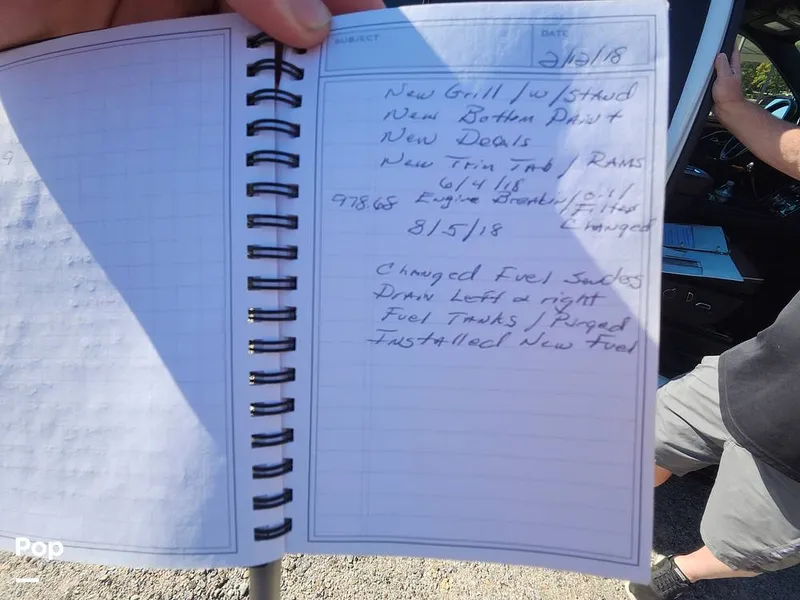 SUBJECT
DATE
2/12/18
New Grill / w/stand
New Bottom Paint
New Decals
New Trim Tab / RAMS
6/4/18
978.68 Engine Breakin/oil/
Filter
8/5/18 Changed
Changed Fuel
Drain Left & right
Fuel Tanks / Purged
Installed New Fuel
9
Pop